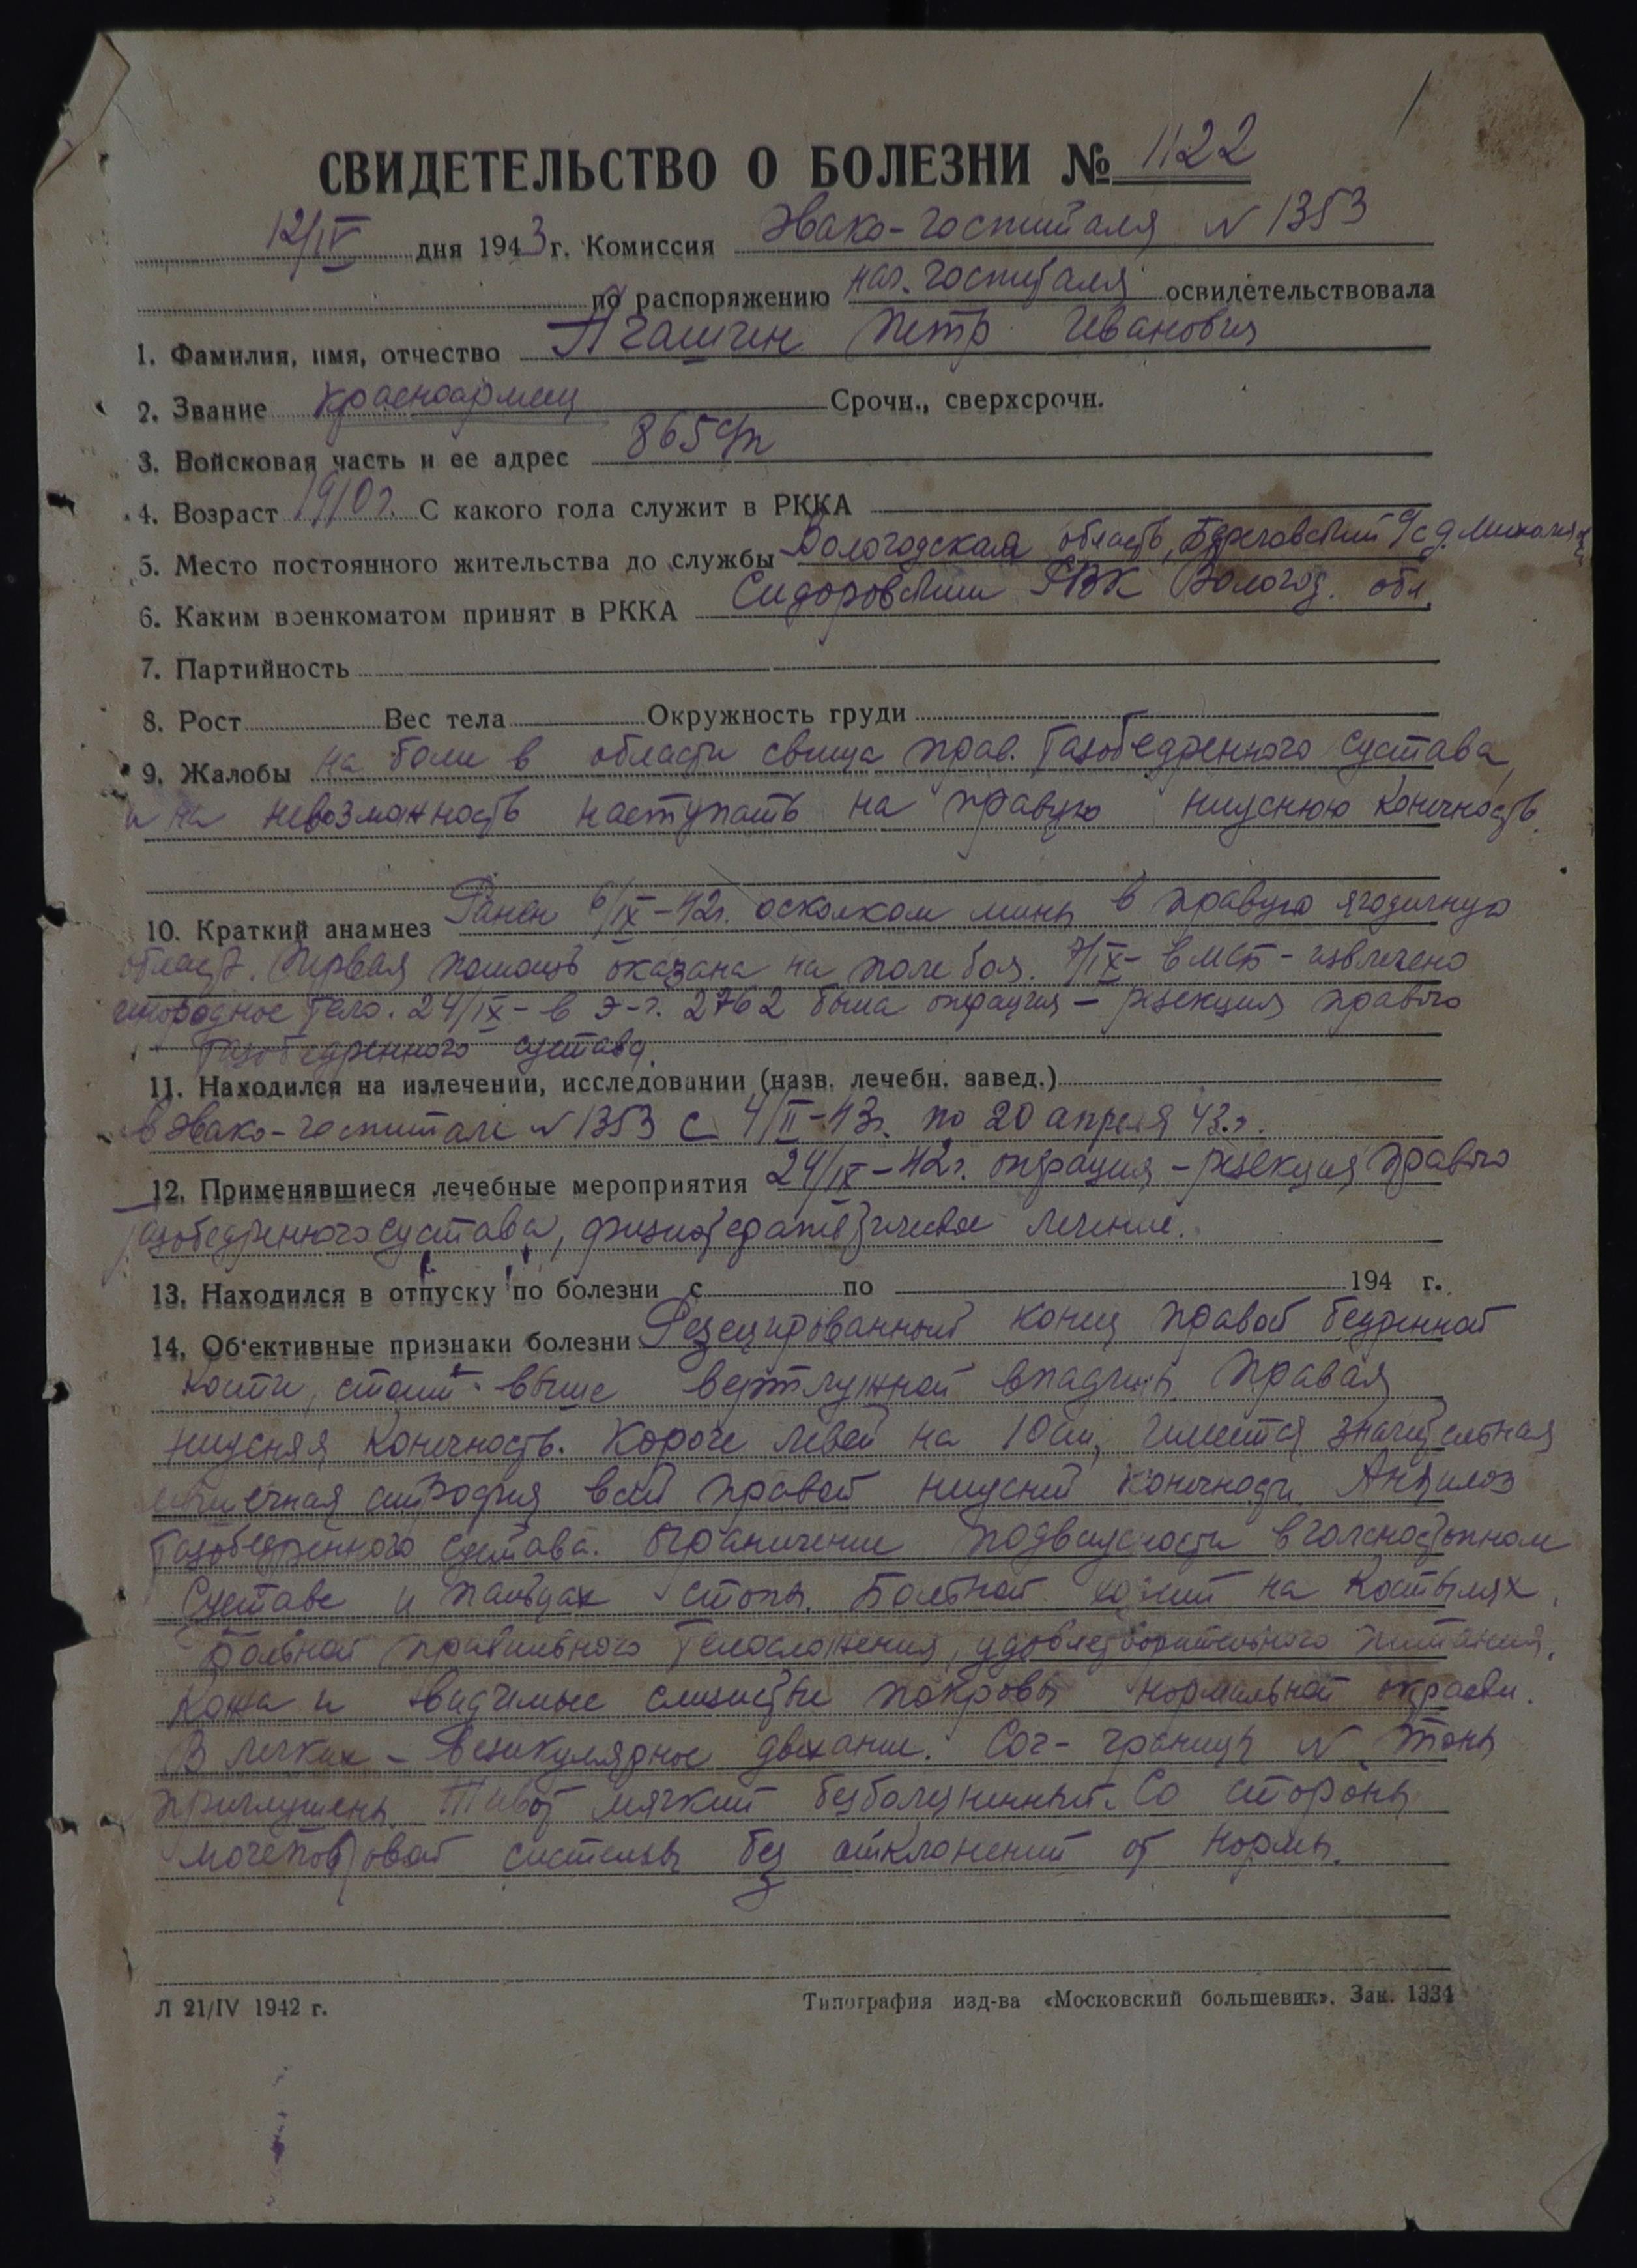 СВИДЕТЕЛЬСТВО О БОЛЕЗНИ № 1122
12/IV дня 1943 г. Комиссия Эвако-госпиталя N 1353
по распоряжению нач. госпиталя освидетельствовала
1. Фамилия, имя, отчество Агашин Петр Иванович
2. Звание красноармеец Срочн., сверхсрочн.
3. Войсковая часть и ее адрес 865 сп
4. Возраст 1910 г. С какого года служит в РККА
5. Место постоянного жительства до службы Вологодская область, с/с д.
6. Каким военкоматом принят в РККА Сидоровским РВК Волог. обл.
7. Партийность
8. Рост Вес тела Окружность груди
9. Жалобы на боли в области свища прав. тазобедренного сустава,
и на невозможность наступать на правую нижнюю конечность.
10. Краткий анамнез Ранен 6/IX-42г. осколком мины в правую ягодичную
область. Первая помощь оказана на поле боя. 7/IX- в МСБ - извлечено
инородное тело. 24/IX- в э-г. 2762 была операция - резекция правого
тазобедренного сустава.
11. Находился на излечении, исследовании (назв. лечебн. завед.)
в Эвако-госпитале N 1353 с 4/II-43г. по 20 апреля 43.г.
12. Применявшиеся лечебные мероприятия 24/IX-42г. операция - резекция правого
тазобедренного сустава, физиотерапевтическое лечение.
13. Находился в отпуску по болезни с по 194 г.
14. Об'ективные признаки болезни Резецированный конец правой бедренной
кости, стоит выше вертлужной впадины. Правая
нижняя конечность. Короче левой на 10 см, имеется значительная
мышечная атрофия всей правой нижней конечности. Анкилоз
тазобедренного сустава. Ограничение подвижности в голеностопном
суставе и пальцах стопы. Больной ходит на костылях.
Больной правильного телосложения, удовлетворительного питания.
Кожа и видимые слизистые покровы нормальной окраски.
В легких - везикулярное дыхание. Сог- границы N. Тоны
приглушены. Живот мягкий безболезненный. Со стороны
мочеполовой системы без отклонений от нормы.
Л 21/IV 1942 г. Типография изд-ва «Московский большевик». Зак. 1334